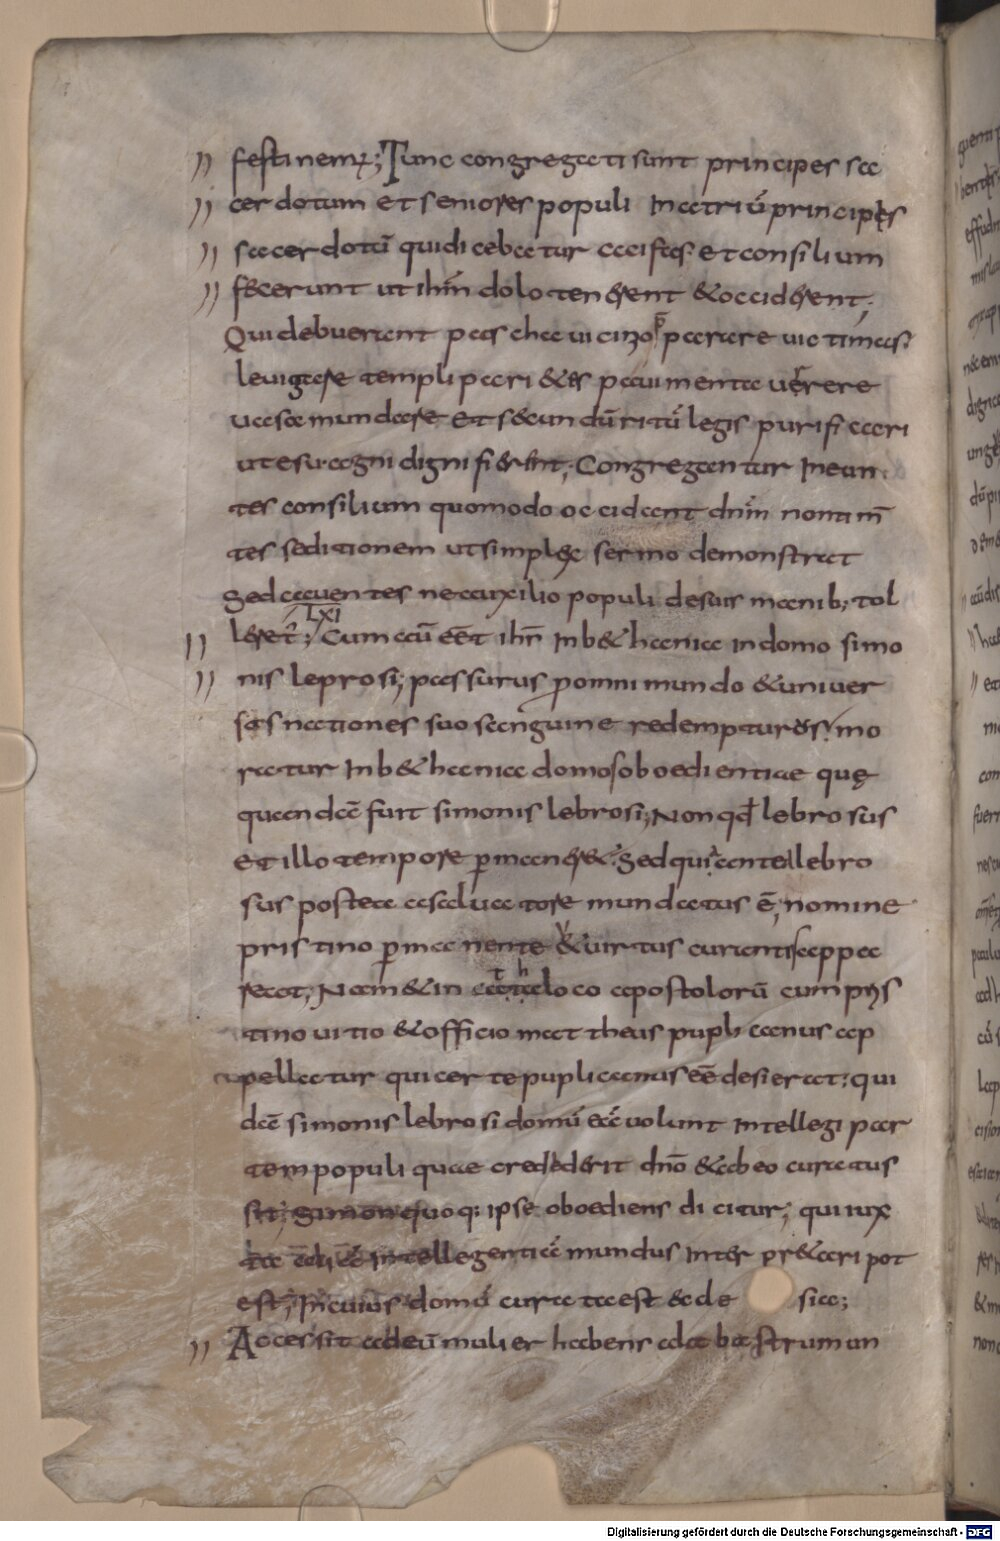 festinem; Tunc congregati sunt principes sa
cerdotum et seniores populi In atriū principis
sacerdotū qui dicebatur caifas. et consilium
fecerunt ut ihm̄ dolo tenerent & occiderent;
Qui debuerant pascha uicino parare uictimas.
leuigare templi pari&es pauimenta uerrere
uasa mundare Et secundū ritū legis purificari
ut esu agni digni fierint; Congregantur Ineun
tes consilium quomodo occidant dnm̄ non tim̄
tes seditionem ut simplex sermo demonstrat
Sed cauentes ne auxilio populi de suis manib; tol
LXI
ler&ur; Cum aū eēt ihs̄ In b&hania In domo simo
nis leprosi; passurus p omni mundo & uniuer
sas nationes suo sanguine redempturus. mo
ratur In b&hania domos oboedientiae quę
quandā fuit simonis lebrosi; Non qđ lebrosus
Et illo tempore pman er&. Sed qui antea lebro
sus postea a saluatore mundatus ē, nomine
pristino pmanente & uirtus curantis appa
reat; Nam & in catalogo apostolorū cum pris
tino uitio & officio mattheus puplicanus ap
pellatur qui certe puplicanus eē desierat; qui
dā simonis lebrosi domū eccl̄ uolunt Intellegi par
tem populi quae crediderit dnō & ab eo curatus
sit; Simon quoq; ipse oboediens dicitur; qui iux
ta aliā Intellegentiā mundus Interpr&ari pot
est; In cuius domū curata est & de sia;
Accessit ad eū mulier habens alabastrum un
Digitalisierung gefördert durch die Deutsche Forschungsgemeinschaft - DFG